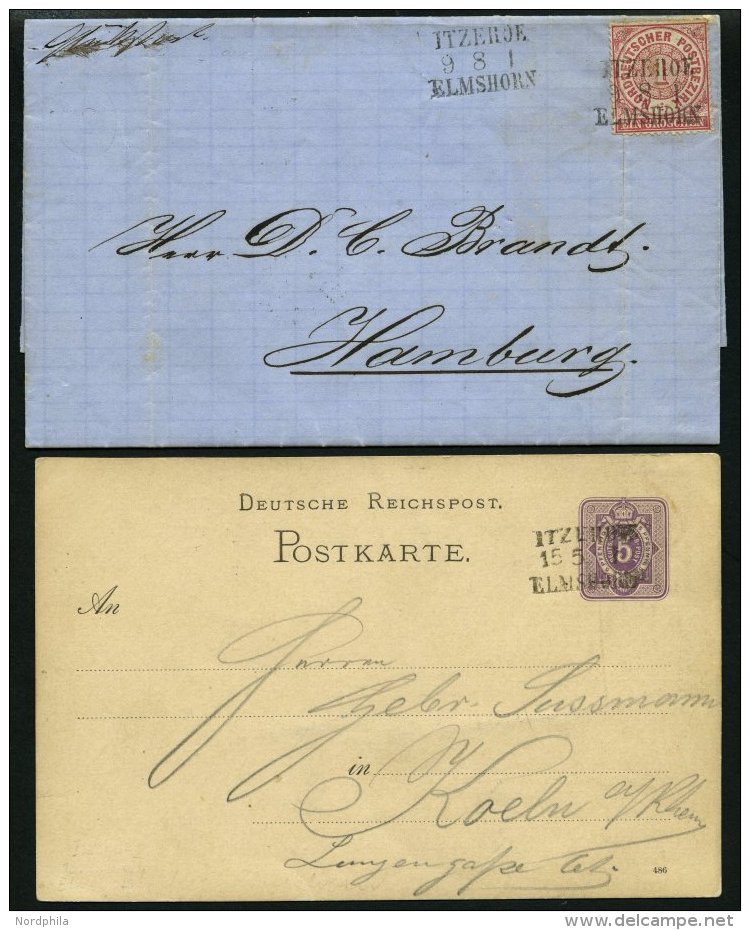 ITZEHOE
9 8 1
ELMSHORN
NORDDEUTSCHER POSTBEZIRK
1
ITZEHOE
8 1
ELMSHORN
Herr D. C. Brandt.
Hamburg.
DEUTSCHE REICHSPOST.
POSTKARTE.
5
ITZEHOE
15 5
ELMSHORN
An
Herren
Gebr. Sussmann
in Koeln a/Rhein
486
Nordphila
delcampe.net